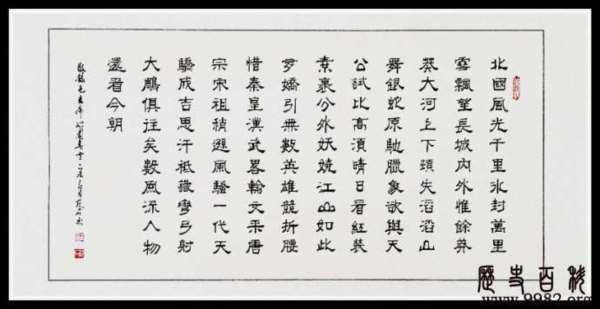 北國風光千里冰封萬里
雪飄望長城內外惟餘莽
莽大河上下頓失滔滔山
舞銀蛇原馳臘象欲與天
公試比高須晴日看紅裝
素裹分外妖嬈江山如此
多嬌引無數英雄競折腰
惜秦皇漢武略輸文采唐
宗宋祖稍遜風騷一代天
驕成吉思汗祇識彎弓射
大鵰俱往矣數風流人物
還看今朝
歷史百科
www.9982.org